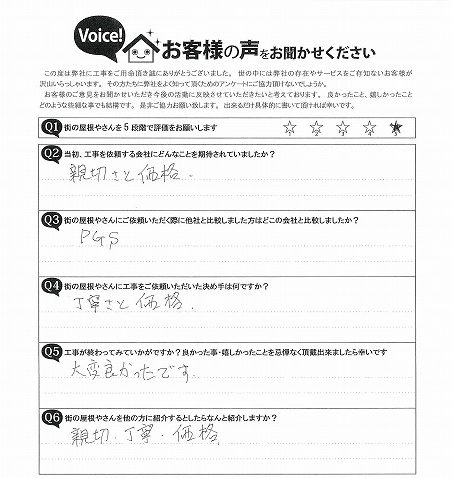 Voice!
お客様の声をお聞かせください
この度は弊社に工事をご用命頂き誠にありがとうございました。世の中には弊社の存在やサービスをご存知ないお客様が
沢山いらっしゃいます。その方たちに弊社をよく知って頂くためのアンケートにご協力頂けないでしょうか。
お客様のご意見をお聞かせいただき今後の活動に反映させていただきたいと考えております。良かったこと、嬉しかったこと
どのような些細な事でも結構です。是非ご協力お願い致します。出来るだけ具体的に書いて頂ければ幸いです。
Q1 街の屋根やさんを5段階で評価をお願いします ☆1 ☆2 ☆3 ☆4 ★5
Q2 当初、工事を依頼する会社にどんなことを期待されていましたか?
親切さと価格.
Q3 街の屋根やさんにご依頼いただく際に他社と比較しました方はどこの会社と比較しましたか?
PGS
Q4 街の屋根やさんに工事をご依頼いただいた決め手は何ですか?
丁寧さと価格.
Q5 工事が終わってみていかがですか?良かった事・嬉しかったことを忌憚なく頂戴出来ましたら幸いです
大変良かったです.
Q6 街の屋根やさんを他の方に紹介するとしたらなんと紹介しますか?
親切.丁寧.価格.